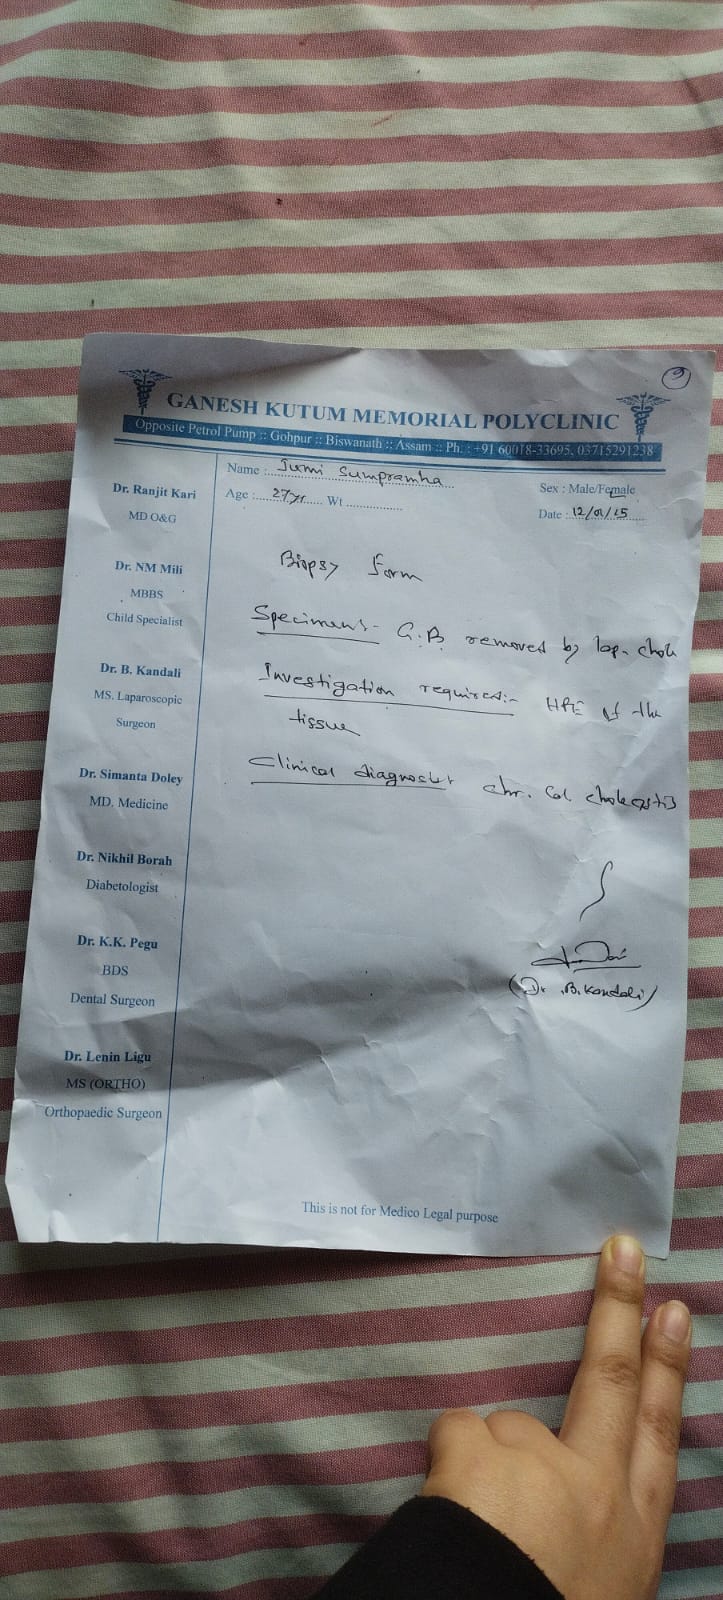 9
GANESH KUTUM MEMORIAL POLYCLINIC
Opposite Petrol Pump :: Gohpur :: Biswanath :: Assam :: Ph. : +91 60018-33695, 03715291238
Name : Jumi Sumpramha
Sex : Male/Female
Age : 27yr Wt
Date : 12/01/25
Dr. Ranjit Kari
MD O&G
Dr. NM Mili
MBBS
Child Specialist
Dr. B. Kandali
MS. Laparoscopic
Surgeon
Dr. Simanta Doley
MD. Medicine
Dr. Nikhil Borah
Diabetologist
Dr. K.K. Pegu
BDS
Dental Surgeon
Dr. Lenin Ligu
MS (ORTHO)
Orthopaedic Surgeon
Biopsy Form
Specimen:- G.B. removed by lap. chole
Investigation required:- HPE of the
tissue
Clinical chr. Cal.
(Dr. B. Kandali)
This is not for Medico Legal purpose